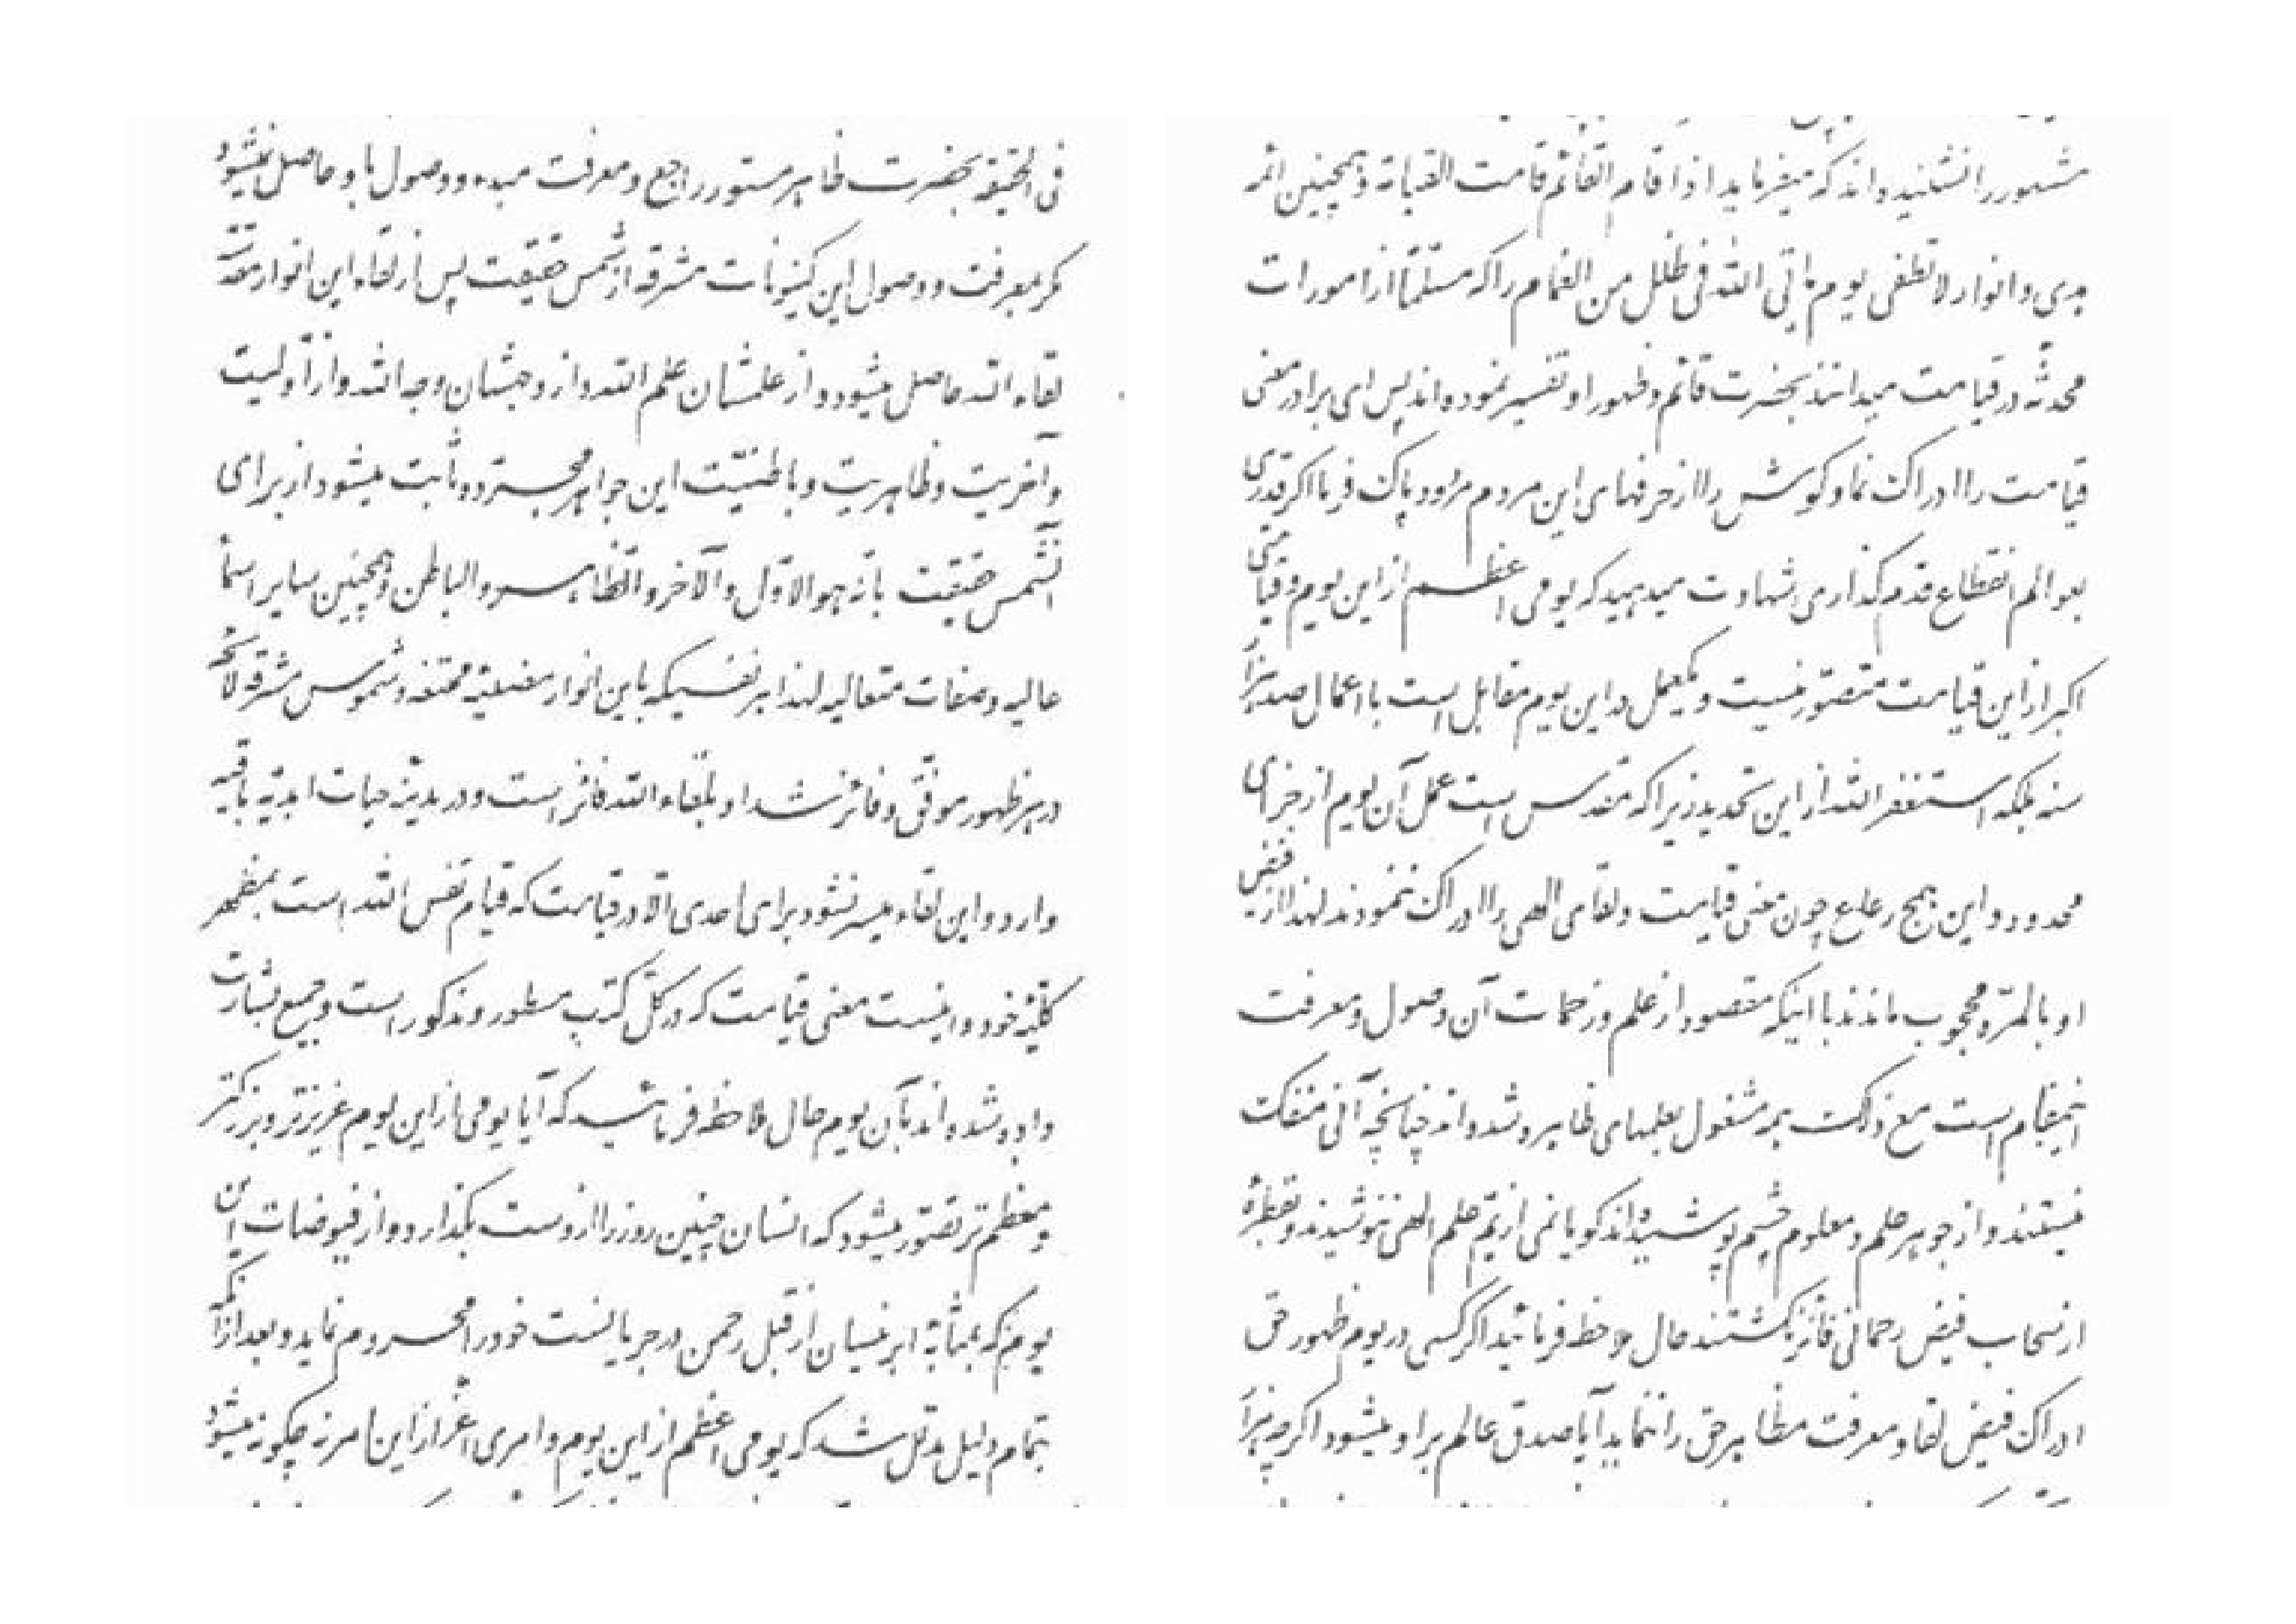 فی الحقیقه بحضرت ظاهر مستور راجع و معرفت مبدء و وصول باو حاصل نمیشود
مگر بمعرفت و وصول این کینونات مشرقه از شمس حقیقت پس از لقاء این انوار مقدّسه
لقاء الله حاصل میشود و از علمشان علم الله و از وجهشان وجه الله و از اوّلیت
و آخریت و ظاهریت و باطنیّت این جواهر مجرده ثابت میشود از برای
آنشمس حقیقت بانّه هو الاوّل و الآخر و الظاهر و الباطن و همچنین سایر اسمآء
عالیه و صفات متعالیه لهذا هر نفسیکه باین انوار مضیئه ممتنعه و شموس مشرقه لائحه
در هر ظهور موفّق و فائز شد او بلقاء الله فائز است و در مدینه حیات ابدیّه باقیه
وارد و این لقاء میسر نشود برای احدی الّا در قیامت که قیام نفس الله است بمظهر
کلّیّه خود و اینست معنی قیامت که در کلّ کتب مسطور و مذکور است و جمیع بشارت
داده شده‌اند بآن یوم حال ملاحظه فرمائید که آیا یومی از این یوم عزیزتر و بزرگتر
و معظم‌تر تصوّر میشود که انسان چنین روز را از دست بگذارد و از فیوضات این
یوم که بمثابه ابر نیسان از قبل رحمن در جریانست خود را محروم نماید و بعد از آنکه
بتمام دلیل مدلّل شد که یومی اعظم از این یوم و امری اعزّ از این امر نه چگونه میشود
مشهور را نشنیده‌اند که میفرماید اذا قام القائم قامت القیامة و همچنین ائمه
هدی و انوار لا تطفی یوم یأتی الله فی ظلل من الغمام را که مسلّماً از امورات
محدثه در قیامت میدانند بحضرت قائم و ظهور او تفسیر نموده‌اند پس ای برادر معنی
قیامت را ادراک نما و گوش را از حرفهای این مردم مردود پاک فرما اگر قدری
بعوالم انقطاع قدم گذاری شهادت میدهید که یومی اعظم از این یوم و قیامتی
اکبر از این قیامت متصوّر نیست و یکعمل در این یوم مقابل است با اعمال صد هزار
سنه بلکه استغفر الله از این تحدید زیرا که مقدس است عمل آن یوم از جزای
محدود و این همج رعاع چون معنی قیامت و لقای الهی را ادراک ننمودند لهذا از فیض
او بالمرّه محجوب ماندند با اینکه مقصود از علم و زحمات آن وصول و معرفت
اینمقام است مع ذلک همه مشغول بعلمهای ظاهره شده‌اند چنانچه آنی منفک
نیستند و از جوهر علم و معلوم چشم پوشیده‌اند گویا نمی از یم علم الهی ننوشیدند و بقطره
از سحاب فیض رحمانی فائز نگشتند حال ملاحظه فرمائید اگر کسی در یوم ظهور حق
ادراک فیض لقا و معرفت مظاهر حق را ننماید آیا صدق عالم بر او میشود اگر چه هزار